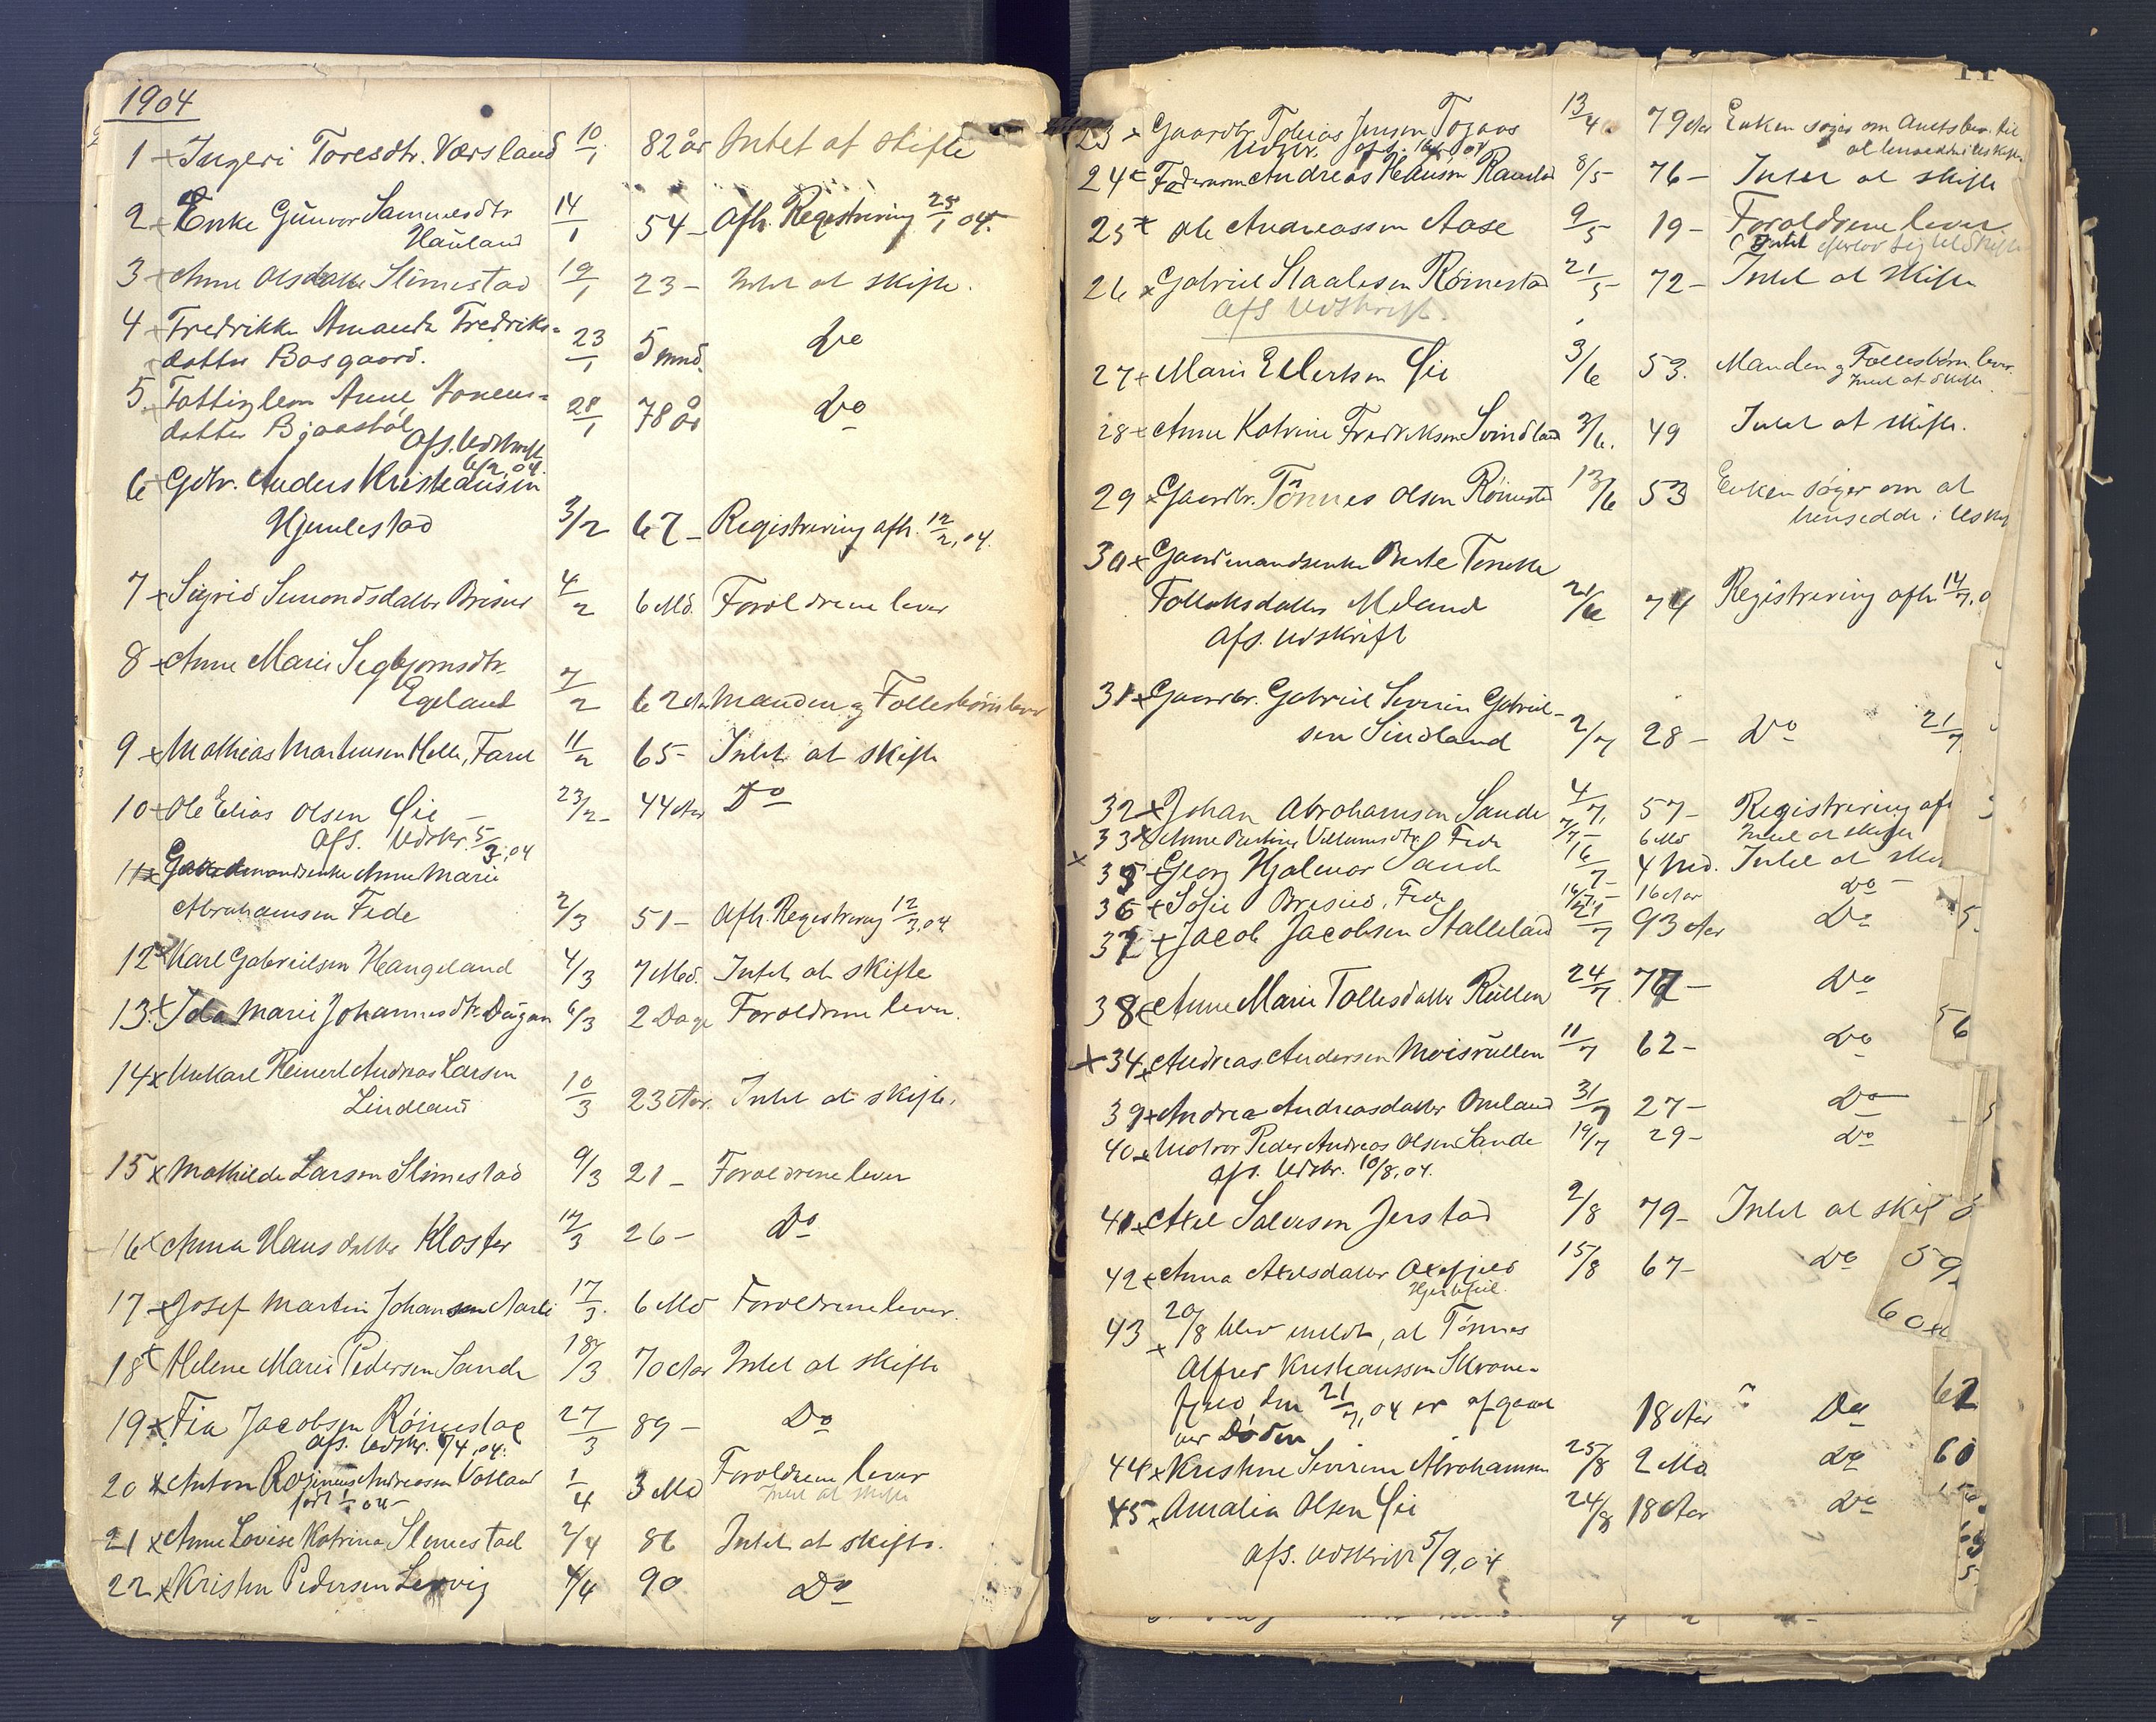 1904
1 x Ingeri Toresdtr. Værsland 10/1 82 år Intet at skifte
2 x Enke Gunvor Samuelsdtr 14/1 54 - Afh. Registrering 25/1 04.
Hauland
3 x Anne Olsdatter Slimestad 19/1 23 - Intet at skifte.
4 x Fredrikke Amanda Fredriks-
datter Bosgaard. 23/1 5 mnd. Do
5. Fattiglem Anne Tønnes-
datter Bjaastøl 28/1 78 år Do
Afs. Udskrift
6/2 04.
6 x Gdbr. Anders Kristiansen
Hjemlestad 3/2 67 - Registrering afh. 12/2, 04.
7 x Sigrid Simondsdatter Brisied 4/2 6 Md. Forældrene lever
8 x Anne Marie Segbjørnsdtr.
Egeland 7/2 62 Aar Manden og Fællesbørn lever
9 x Mathias Martinsen Helle, Faret 11/2 65 - Intet at skifte
10 x Ole Elias Olsen Øie - 23/2 44 Aar Do
Afs. Udskr. 5/3, 04
11 x Gaardmandsenke Anne Marie
Abrahamsen Fede 2/3 51 - Afh. Registrering 12/3, 04
12 x Karl Gabrielsen Haugeland 4/3 7 Md. Intet at skifte
13. x Ida Marie Johannesdtr. 6/3 2 Dage Forældrene lever.
14 x Unkarl Reinert Andreas Larsen
Lindland 10/3 23 Aar. Intet at skifte.
15 x Mathilde Larsen Slimestad 9/3 21 - Forældrene lever
16 x Anna Hansdatter Kloster 12/3 26 - Do
17 x Josef Martin Johansen 17/3. 6 Md Forældrene lever.
18 x Helene Marie Pedersen Sande 18/3 70 Aar Intet at skifte
19 x Fia Jacobsen Røinestad 27/3 89 - Do
Afs. Udskr. 7/4, 04.
20 x Anton Andreassen Vatland 1/4 3 Md Forældrene lever
Intet at skifte
21 x Anne Lovise Katrina Slimestad 2/4 86 Intet at skifte.
22 x Kristen Pedersen Lervig 4/4 90 Do
23 x Gaardbr. Tobias Jensen 13/4. 79 Aar Enken søger om Amtsbev. til
Udskr. afs. at hensidde i Uskifte
24 x Andreas Hansen 8/5 76 - Intet at skifte
25 x Ole Andreassen Aase 9/5 19 - Forældrene lever.
Intet efterlod sig til Skifte
26 x Gabriel Staalesen Røinestad 21/5 72 - Intet at skifte
Afs Udskrift.
27 x Marie Ellertsen Øie 3/6 53. Manden og Fællesbørn lever.
Intet at skifte
28 x Anne Katrine Fredriksen Svindland 3/6. 49 Intet at skifte.
29 x Gaardbr. Tönnes Olsen Röinestad 13/6 53 Enken søger om at
hensidde i Uskif
30 x Gaardmandsenke Berte Tomine
Tollaksdatter Meland 21/6 74 Registrering afh. 14/7, 0
Afs. Udskrift
31 x Gaardbr. Gabriel Severin Gabriel-
sen Sindland 2/7 28 - Do 21/7
32 x Johan Abrahamsen Sande 4/7. 57 - Registrering af
33 x Anne Villumsdtr Fede 7/7 - 6 Md Intet at skifte
x 35 x Georg Hjalmar Sande 16/7 4 Md. Intet at ski
36 x Sofie Brisied, Fede 16/7 - 16 Aar Do -
37 x Jacob Jacobsen Stalleland 21/7 93 Aar Do
38 x Anne Marie Tollesdatter Rüllen 24/7. 77 - Do
x 34. x Andreas Andersen Moisrüllen 11/7 62 - Do
39 x Andrea Andreasdatter Omland 31/7 27 - Do
40 x Matros Peder Andreas Olsen Sande 19/7 29 - Do
afs. Udskr. 10/8, 04.
41 x Axel Salvesen Jerstad 2/8 79 - Intet at skif
42 x Anna Axelsdatter Oxefjeld 15/8 67 - Do
43 x 20/8 blev meldt, at Tönnes
Alfred Kristiansen Skrane-
fjeld den 21/7, 04 er afgaaet
ved Døden 18 Aar Do
44 x Kristine Severine Abrahamsen 25/8 2 Md Do
45 x Amalia Olsen Øie 24/8 18 Aar Do
Afs. Udskrift 5/9, 04
5.
56
59
60
62
60